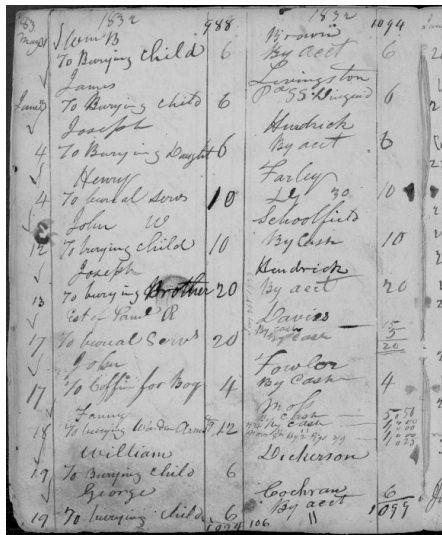 1832 988 1832 1094
May Wm B Brown
To Burying Child 6 By acct 6
James Livingston
June 3 To Burying Child 6 Pr SS 6
Joseph Hendrick
4 To Burying Daught 6 By acct 6
Henry Farley
4 To burial Servs 10 30 10
John W Schoolfield
12 To burying Child 10 By Cash 10
Joseph Hendrick
13 To burying Brother 20 By acct 20
Est of Saml R Davies 15
17 To burial Servs 20 By Cash 5
20
John Fowlor
17 To Coffin for Boy 4 By Cash 4
Fanny
18 To burying 12 By Cash
William Dickerson
19 To Burying Child 6
George Cochran 6
19 To burying Child 6 By acct 1099
1094 106 11